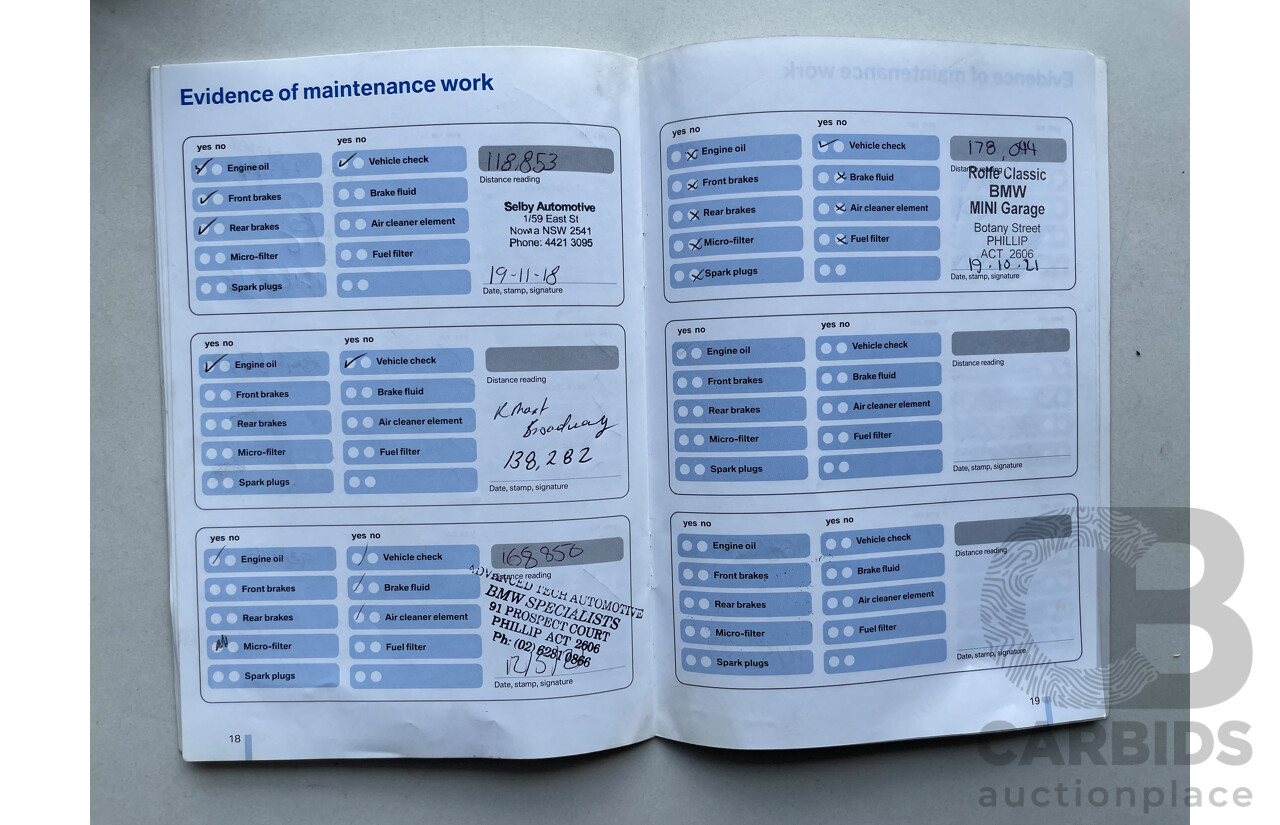 Evidence of maintenance work
yes no
yes no
Engine oil
Vehicle check
118,853
Distance reading
Front brakes
Brake fluid
Rear brakes
Air cleaner element
Micro-filter
Fuel filter
Spark plugs
Selby Automotive
1/59 East St
Nowra NSW 2541
Phone: 4421 3095
19-11-18
Date, stamp, signature
yes no
yes no
Engine oil
Vehicle check
Distance reading
Front brakes
Brake fluid
Rear brakes
Air cleaner element
Micro-filter
Fuel filter
Spark plugs
K Mart
Broadway
138,282
Date, stamp, signature
yes no
yes no
Engine oil
Vehicle check
168,850
Distance reading
Front brakes
Brake fluid
Rear brakes
Air cleaner element
Micro-filter
Fuel filter
Spark plugs
ADVANCED TECH AUTOMOTIVE
BMW SPECIALISTS
91 PROSPECT COURT
PHILLIP ACT 2606
Ph: (02) 6281 0866
Date, stamp, signature
18
yes no
yes no
Engine oil
Vehicle check
178,044
Distance reading
Front brakes
Brake fluid
Rear brakes
Air cleaner element
Micro-filter
Fuel filter
Spark plugs
Rolfe Classic
BMW
MINI Garage
Botany Street
PHILLIP
ACT 2606
19.10.21
Date, stamp, signature
yes no
yes no
Engine oil
Vehicle check
Distance reading
Front brakes
Brake fluid
Rear brakes
Air cleaner element
Micro-filter
Fuel filter
Spark plugs
Date, stamp, signature
yes no
yes no
Engine oil
Vehicle check
Distance reading
Front brakes
Brake fluid
Rear brakes
Air cleaner element
Micro-filter
Fuel filter
Spark plugs
Date, stamp, signature
19
CB
CARBIDS
auctionplace